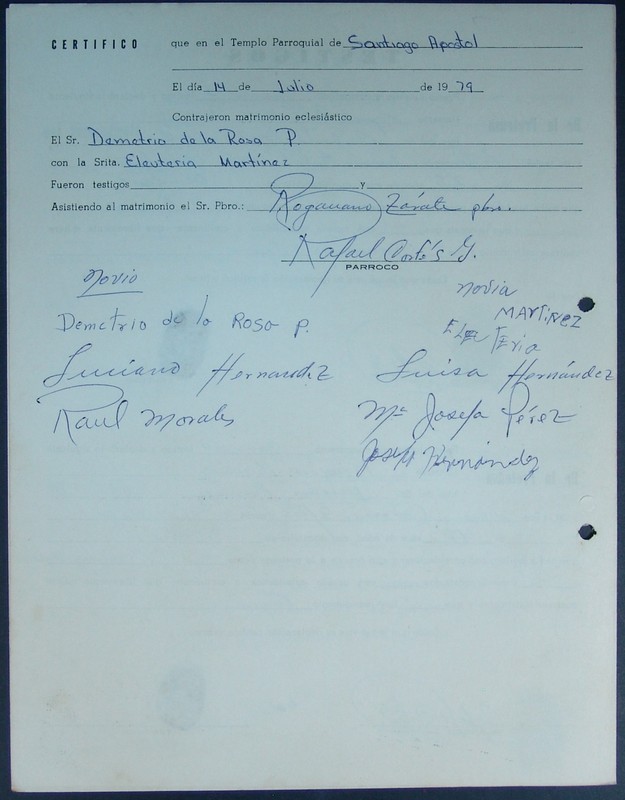 CERTIFICO que en el Templo Parroquial de Santiago Apostol
El día 14 de Julio de 1979
Contrajeron matrimonio eclesiástico
El Sr. Demetrio de la Rosa P.
con la Srita. Eleuteria Martínez
Fueron testigos y
Asistiendo al matrimonio el Sr. Pbro.: Rogaciano Zárate pbro.
Rafael Cortés G.
PARROCO
Novio
novia
Demetrio de la Rosa P.
MARTINEZ
Luciano Hernandez
Luisa Hernández
Raul Morales
Ma Josefa Pérez
Hernández